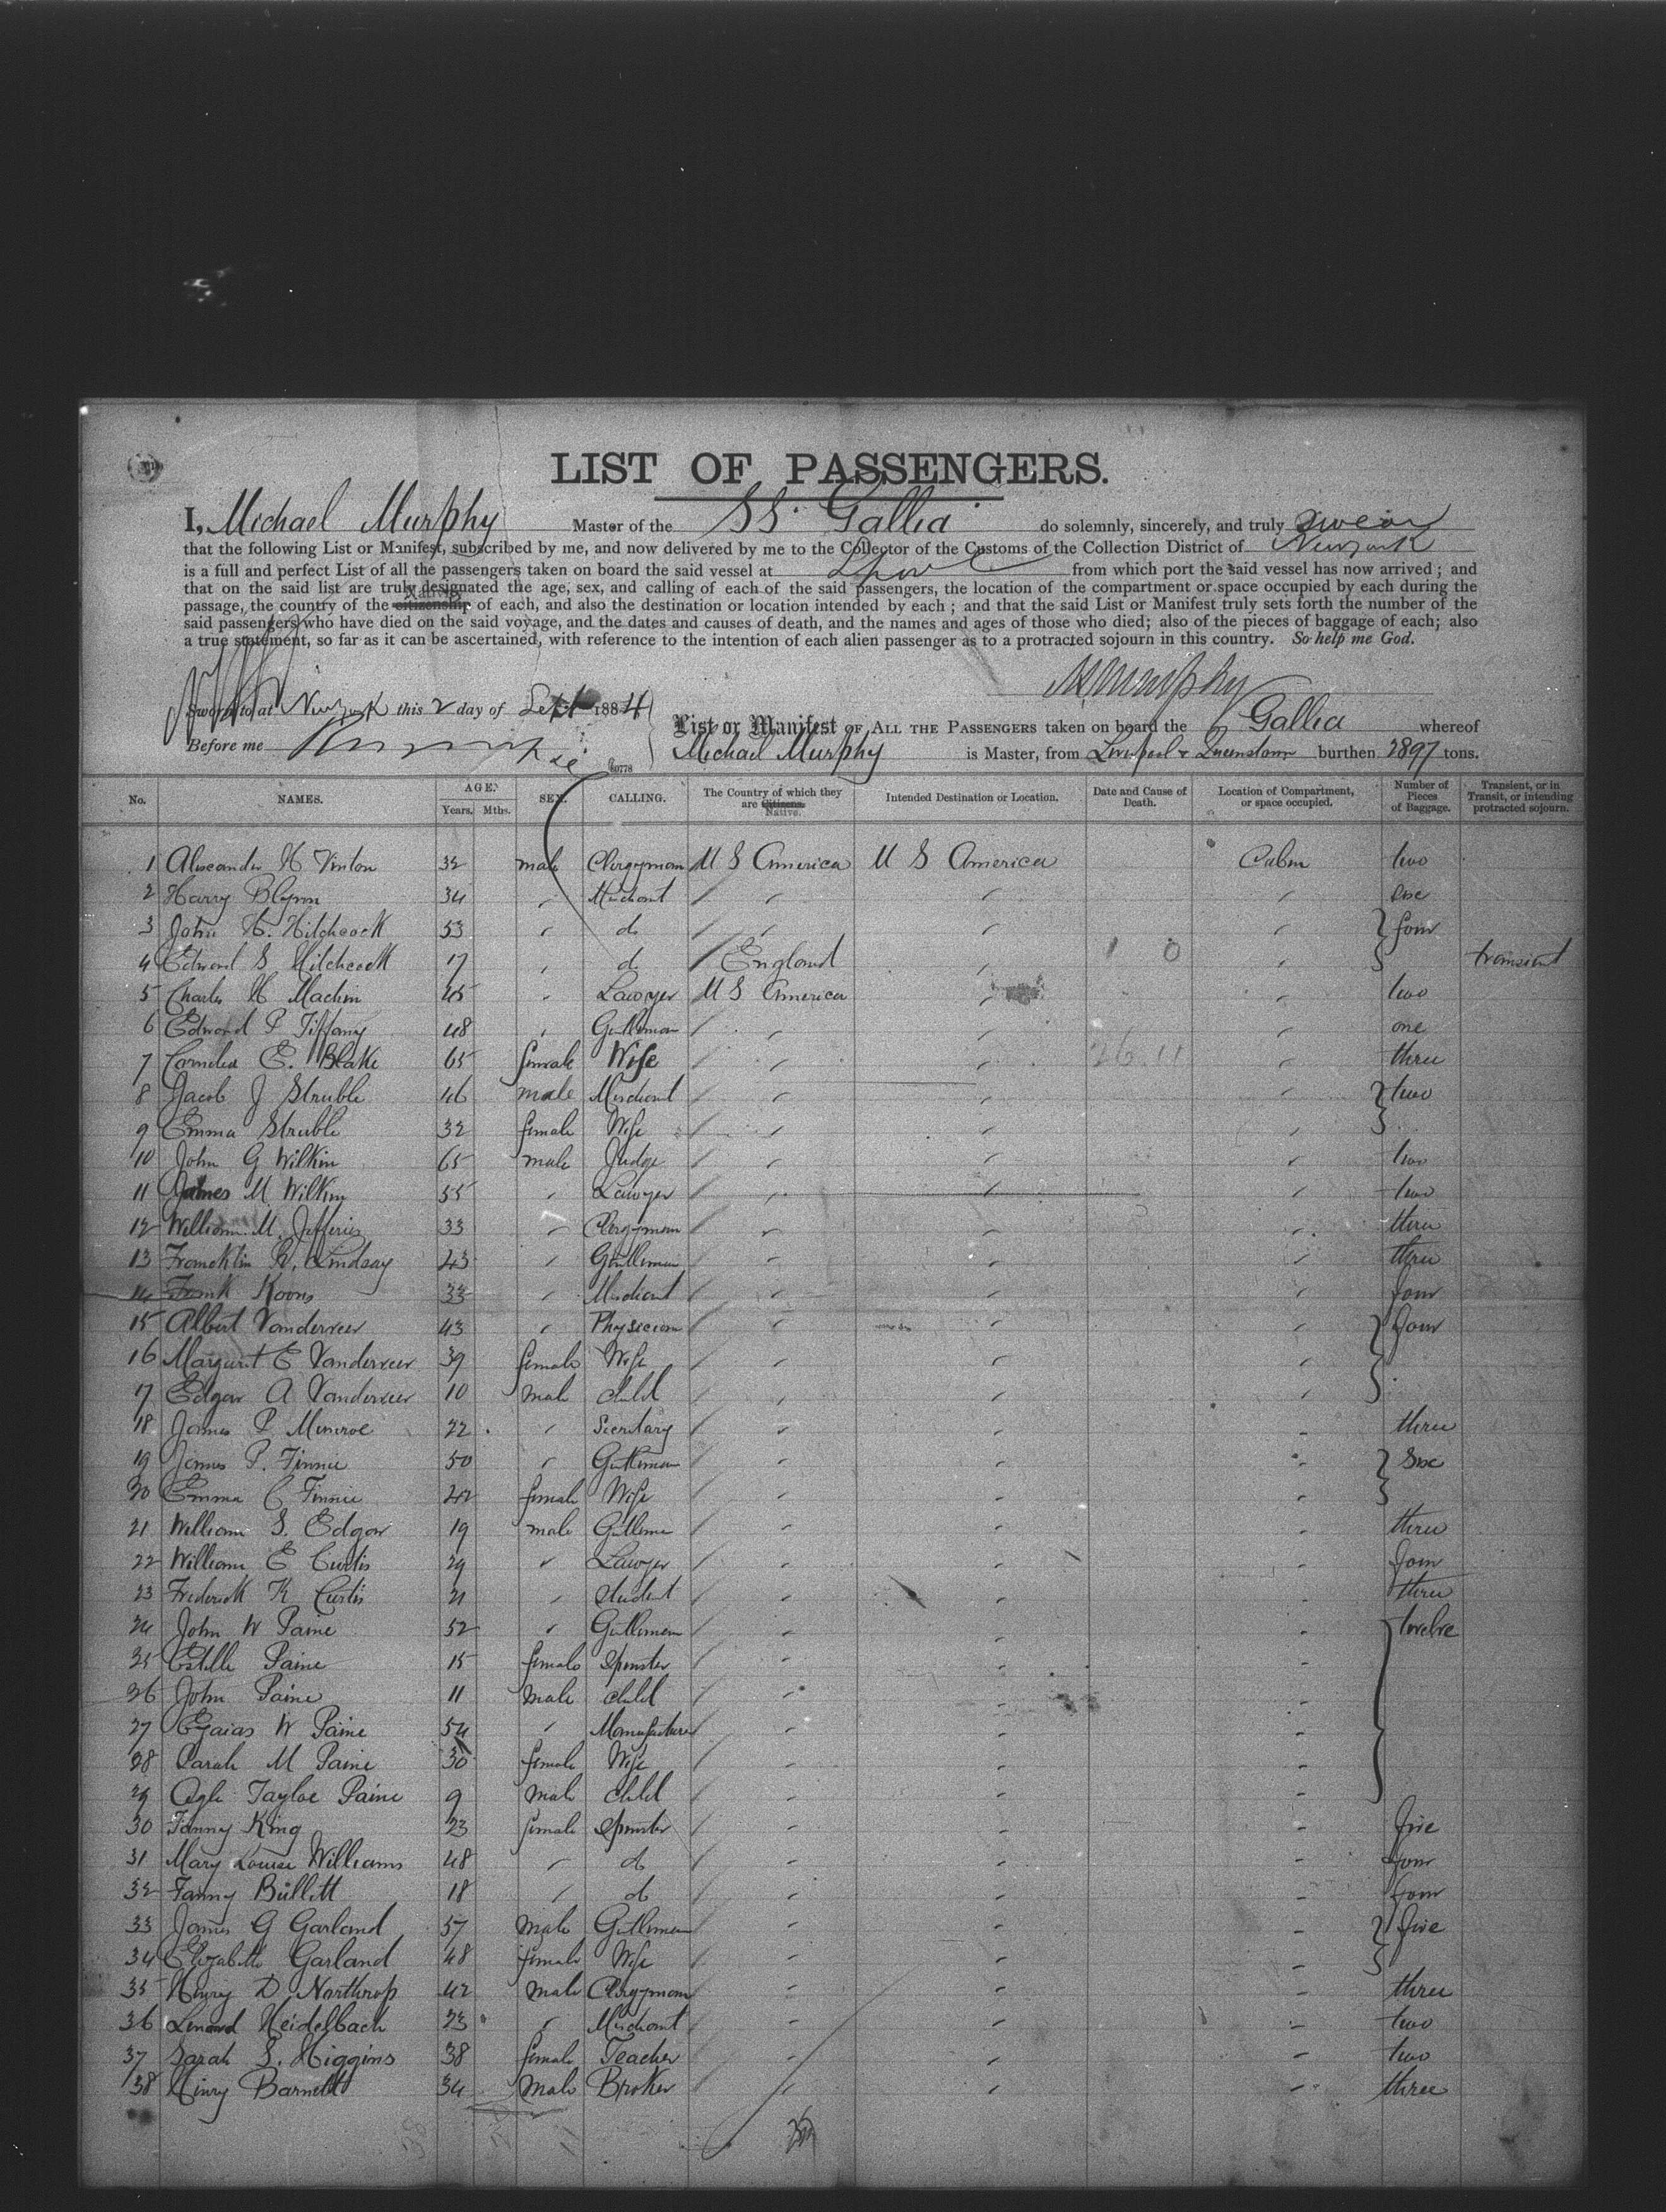 LIST OF PASSENGERS.
I, Michael Murphy Master of the SS. Gallia do solemnly, sincerely, and truly swear
that the following List or Manifest, subscribed by me, and now delivered by me to the Collector of the Customs of the Collection District of New York
is a full and perfect List of all the passengers taken on board the said vessel at Lpool from which port the said vessel has now arrived ; and
that on the said list are truly designated the age, sex, and calling of each of the said passengers, the location of the compartment or space occupied by each during the
Native
passage, the country of the citizenship of each, and also the destination or location intended by each ; and that the said List or Manifest truly sets forth the number of the
said passengers who have died on the said voyage, and the dates and causes of death, and the names and ages of those who died; also of the pieces of baggage of each; also
a true statement, so far as it can be ascertained, with reference to the intention of each alien passenger as to a protracted sojourn in this country. So help me God.
M Murphy
Sworn to at New York this 2 day of Sept 1884
Before me
List or Manifest OF ALL THE PASSENGERS taken on board the Gallia whereof
Michael Murphy is Master, from Liverpool & Queenstown burthen 2897 tons.
No. NAMES. AGE. Years. Mths. SEX. CALLING. The Country of which they are Citizens. Native. Intended Destination or Location. Date and Cause of Death. Location of Compartment, or space occupied. Number of Pieces of Baggage. Transient, or in Transit, or intending protracted sojourn.
1 Alexander H Vinton 32 male Clergyman U S America U S America Cabin two
2 Harry Blynn 34 " Merchant " " " six
3 John H. Hitchcock 53 " do " " " four
4 Edward S Hitchcock 17 " do England " " transient
5 Charles H Machin 45 " Lawyer U S America " " two
6 Edward P Tiffany 48 " Gentleman " " " one
7 Cornelia E. Blake 65 female Wife " " " three
8 Jacob J Struble 46 male Merchant " " " two
9 Emma Struble 32 female Wife " " "
10 John G Wilkin 65 male Judge " " " two
11 James M Wilkin 55 " Lawyer " " " two
12 William M. Jefferis 33 " Clergyman " " " three
13 Francklin H. Lindsay 23 " Gentleman " " " three
14 Frank Koons 33 " Merchant " " " four
15 Albert Vanderveer 43 " Physician " " " four
16 Margaret E Vanderveer 39 female Wife " " "
17 Edgar A Vanderveer 10 male child " " "
18 James P Munroe 22 " Secretary " " " three
19 James P. Finnie 50 " Gentleman " " " Six
20 Emma C Finnie 42 female Wife " " "
21 William S. Edgar 19 male Gentleman " " " three
22 William E Curtis 29 " Lawyer " " " four
23 Frederick K Curtis 21 " Student " " " three
24 John W Paine 52 " Gentleman " " " twelve
25 Estelle Paine 15 female Spinster " " "
26 John Paine 11 male child " " "
27 W Paine 54 " Manufacturer " " "
28 Sarah M Paine 30 female Wife " " "
29 Ogle Tayloe Paine 9 male child " " "
30 Fanny King 23 female Spinster " " " five
31 Mary Louise Williams 48 " do " " " four
32 Fanny Bullitt 18 " do " " " four
33 James G Garland 57 male Gentleman " " " five
34 Elizabeth Garland 48 female Wife " " "
35 Henry D Northrop 42 male Clergyman " " " three
36 Lenard Heidelbach 23 " Merchant " " " two
37 Sarah S. Higgins 38 female Teacher " " " two
38 Henry Barnett 34 male Broker " " " three